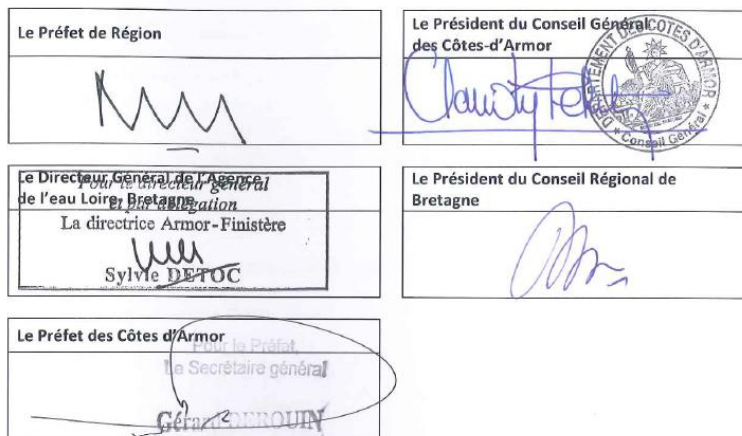 Le Préfet de Région
Le Président du Conseil Général
des Côtes-d'Armor
DEPARTEMENT DES COTES D'ARMOR
* Conseil Général *
Le Directeur Général de l'Agence
de l'eau Loire-Bretagne
Pour le directeur général
et par délégation
La directrice Armor-Finistère
Sylvie DETOC
Le Président du Conseil Régional de
Bretagne
Le Préfet des Côtes d'Armor
Pour le Préfet,
Le Secrétaire général
Gérard DEROUIN